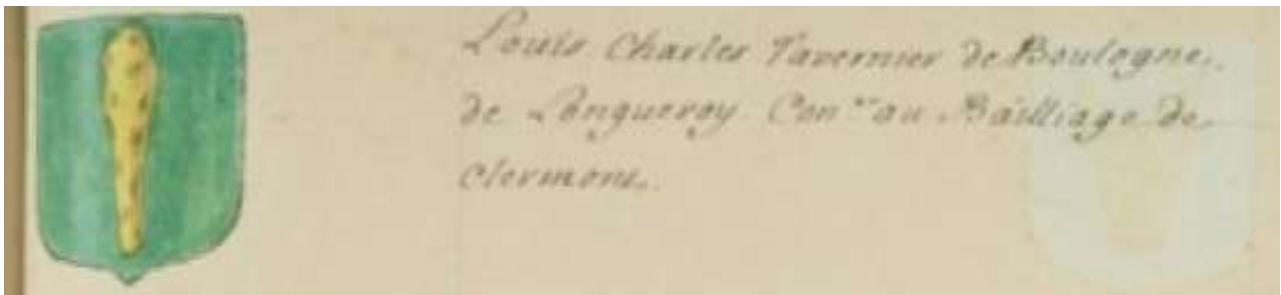 Louis Charles Tavernier de Boulogne.
de Longueroy Con.er au Bailliage de
Clermont.